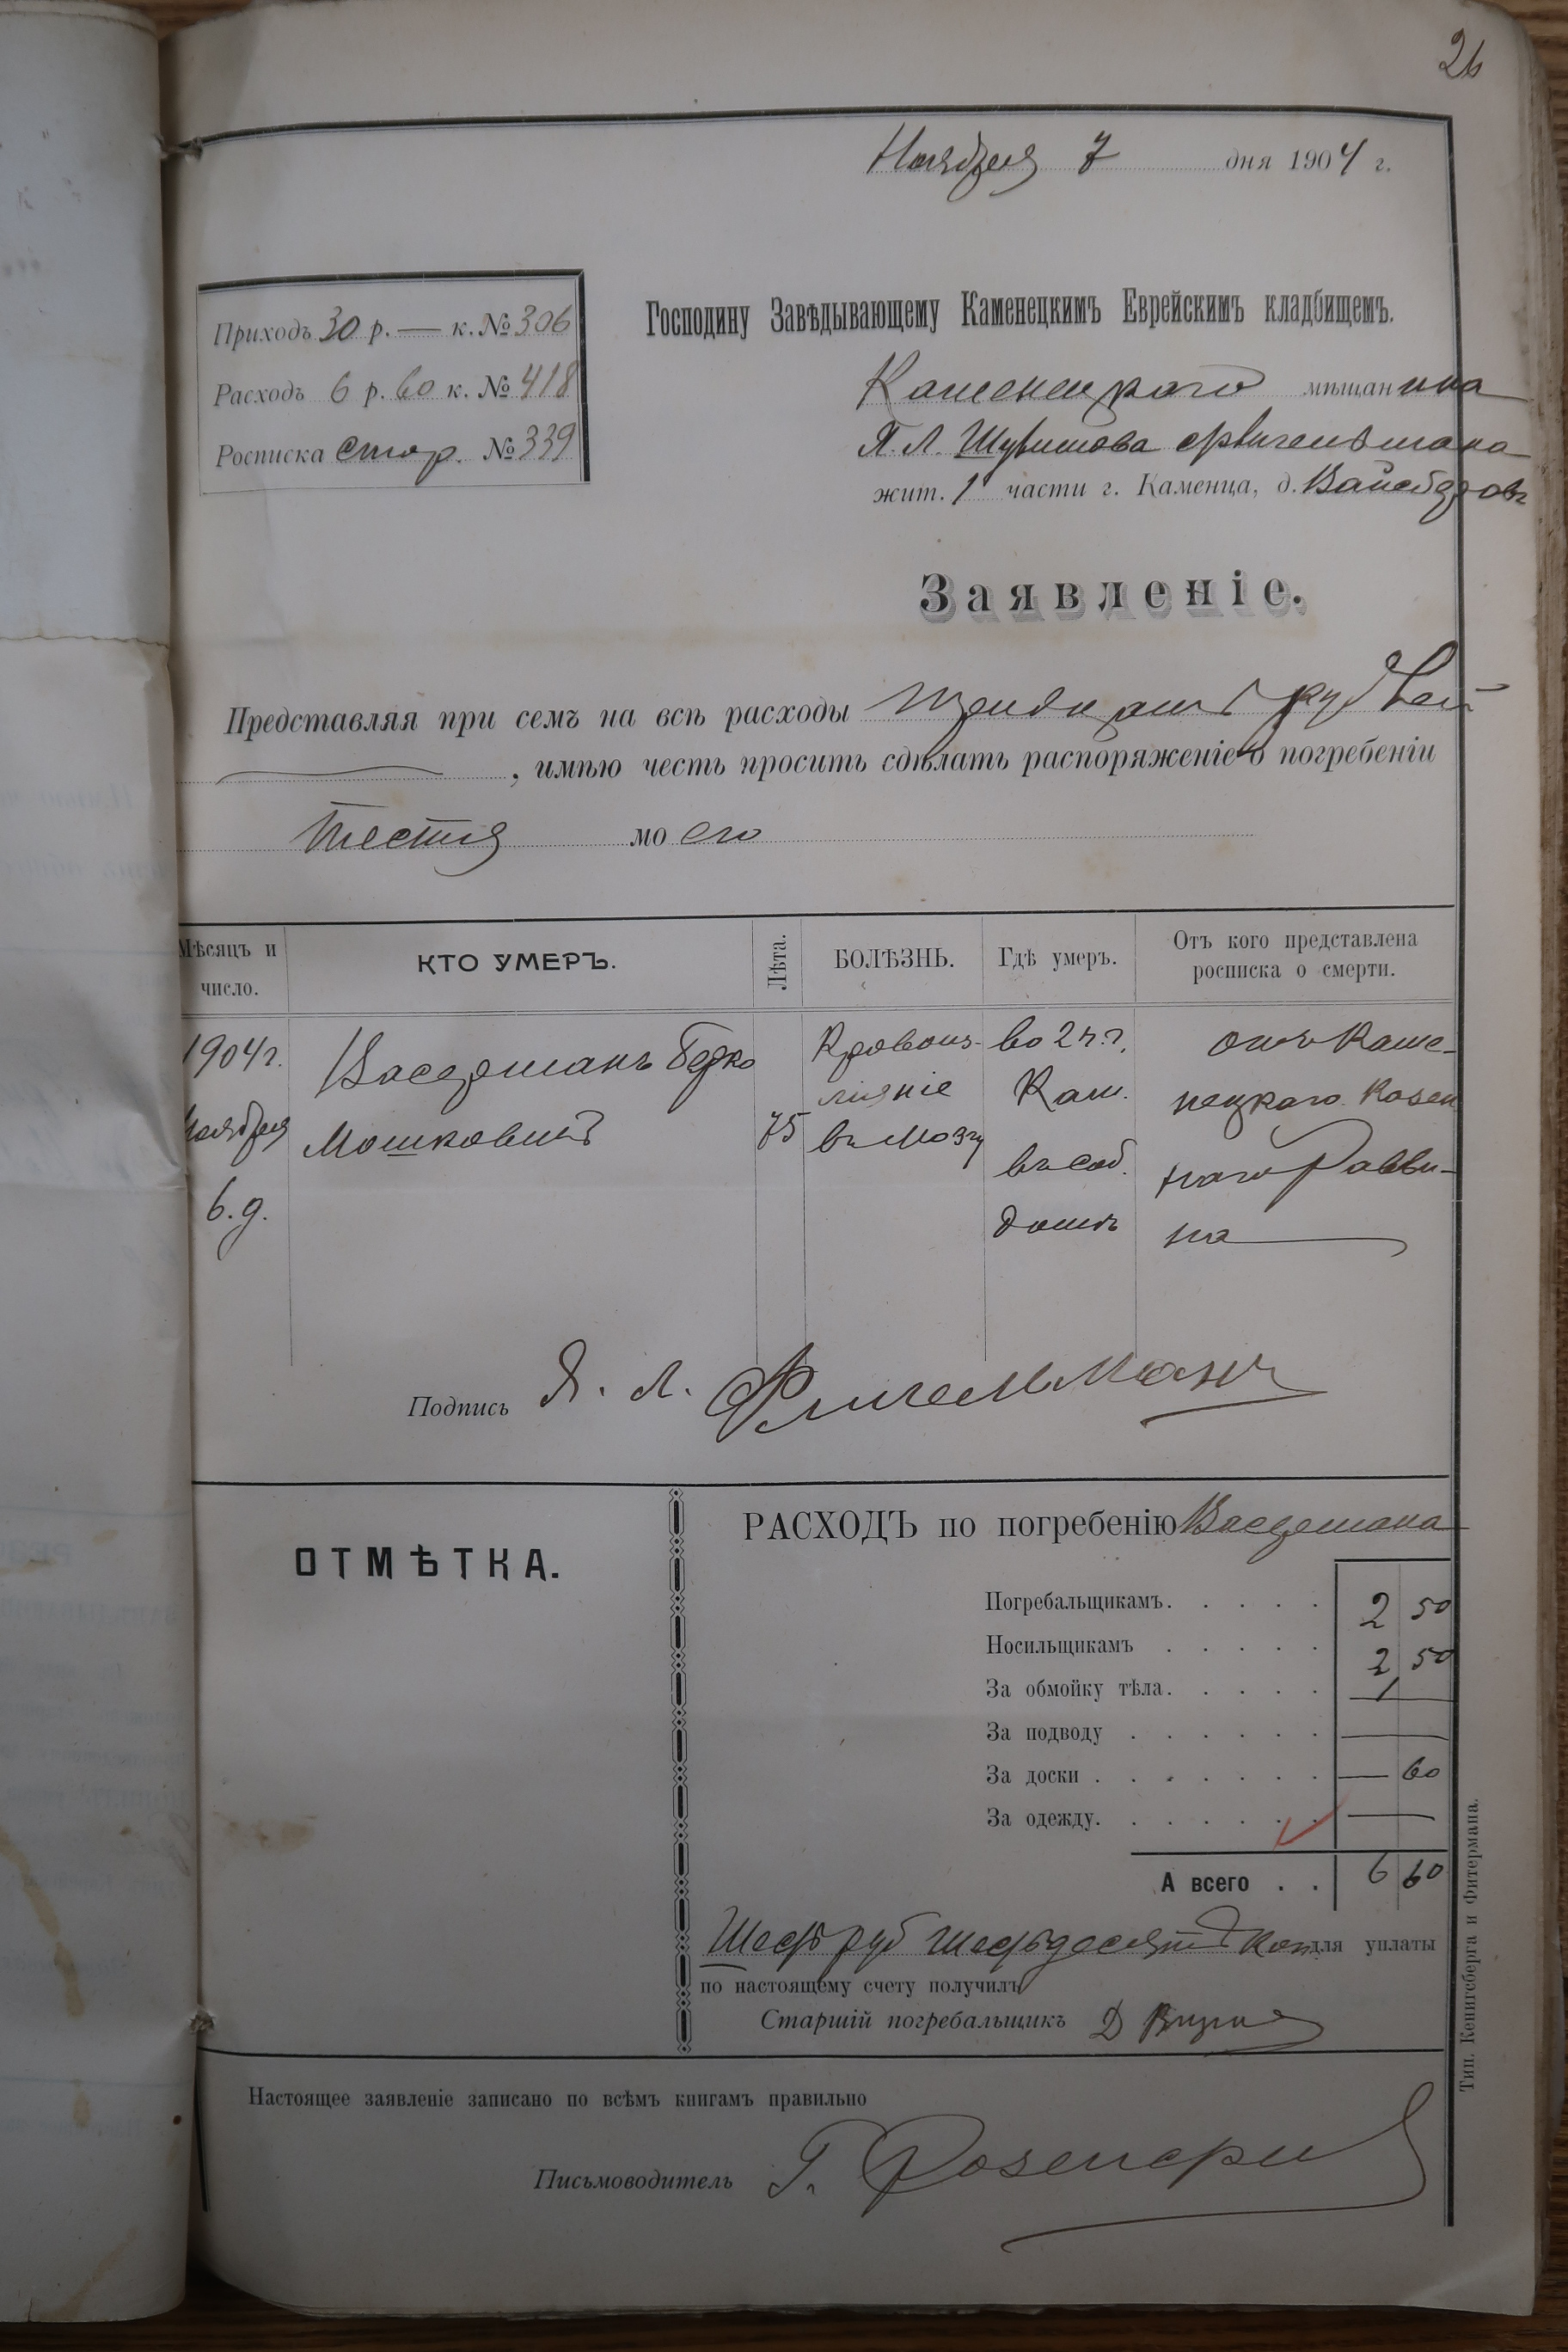 26
Ноября 7 дня 1904 г.
Приходъ 30 р. — к. № 306
Расходъ 6 р. 60 к. № 418
Росписка стор. № 339
Господину Завѣдывающему Каменецкимъ Еврейскимъ кладбищемъ.
Каменецкаго мѣщанина
Я. Л. Фличельмана
жит. 1 части г. Каменца, д.
Заявленіе.
Представляя при семъ на всѣ расходы тридцать рублей
, имѣю честь просить сдѣлать распоряженіе о погребеніи
тестя моего
Мѣсяцъ и число.
КТО УМЕРЪ.
Лѣта.
БОЛѢЗНЬ.
Гдѣ умеръ.
Отъ кого представлена росписка о смерти.
1904 г.
Ноября
6. д.
Вассерманъ Берко
Мошковичъ
75
Кровоиз-
ліяніе
въ мозгу
во 2 ч. г.
Кам.
въ соб.
домѣ
отъ Каме-
нецкаго Казен
наго Равви-
на
Подпись Я. Л. Фличельманъ
ОТМѢТКА.
РАСХОДЪ по погребенію Вассермана
Погребальщикамъ. . . . . 2 50
Носильщикамъ . . . . . 2 50
За обмойку тѣла. . . . . 1 —
За подводу . . . . . . —
За доски . . . . . . . — 60
За одежду. . . . . . . —
А всего . . 6 60
Шесть руб шестьдесятъ коп для уплаты
по настоящему счету получилъ
Старшій погребальщикъ Д
Настоящее заявленіе записано по всѣмъ книгамъ правильно
Письмоводитель Г.
Тип. Кенигсберга и Фитермана.